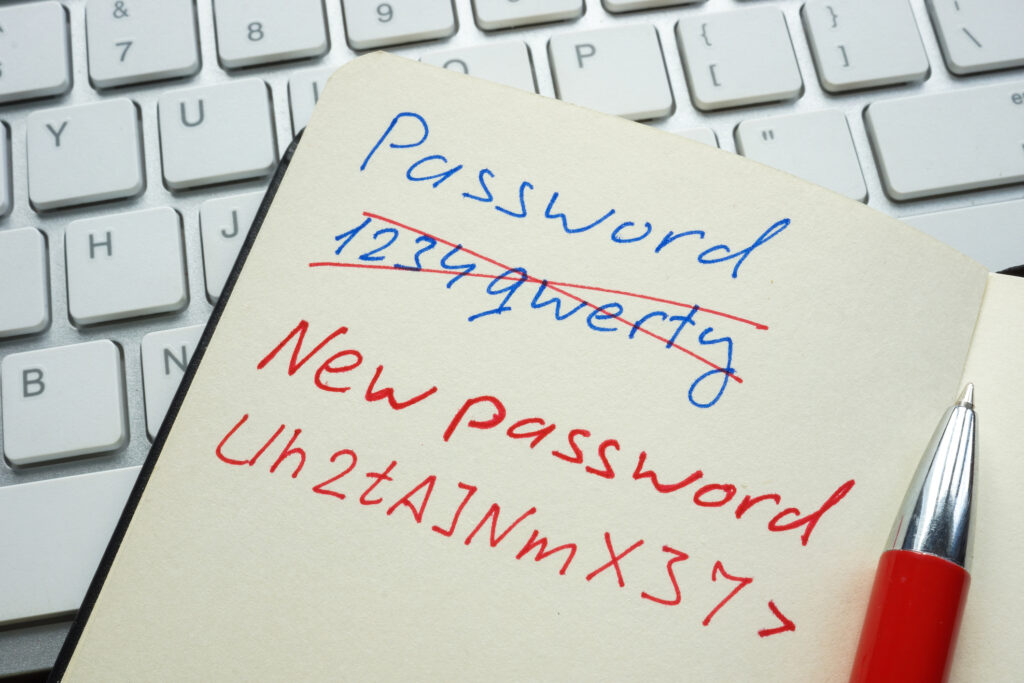 & 7 8 9
Y U P { [ } ] \
H J "
B N
Password
1234qwerty
New password
Uh2tA]NmX37>